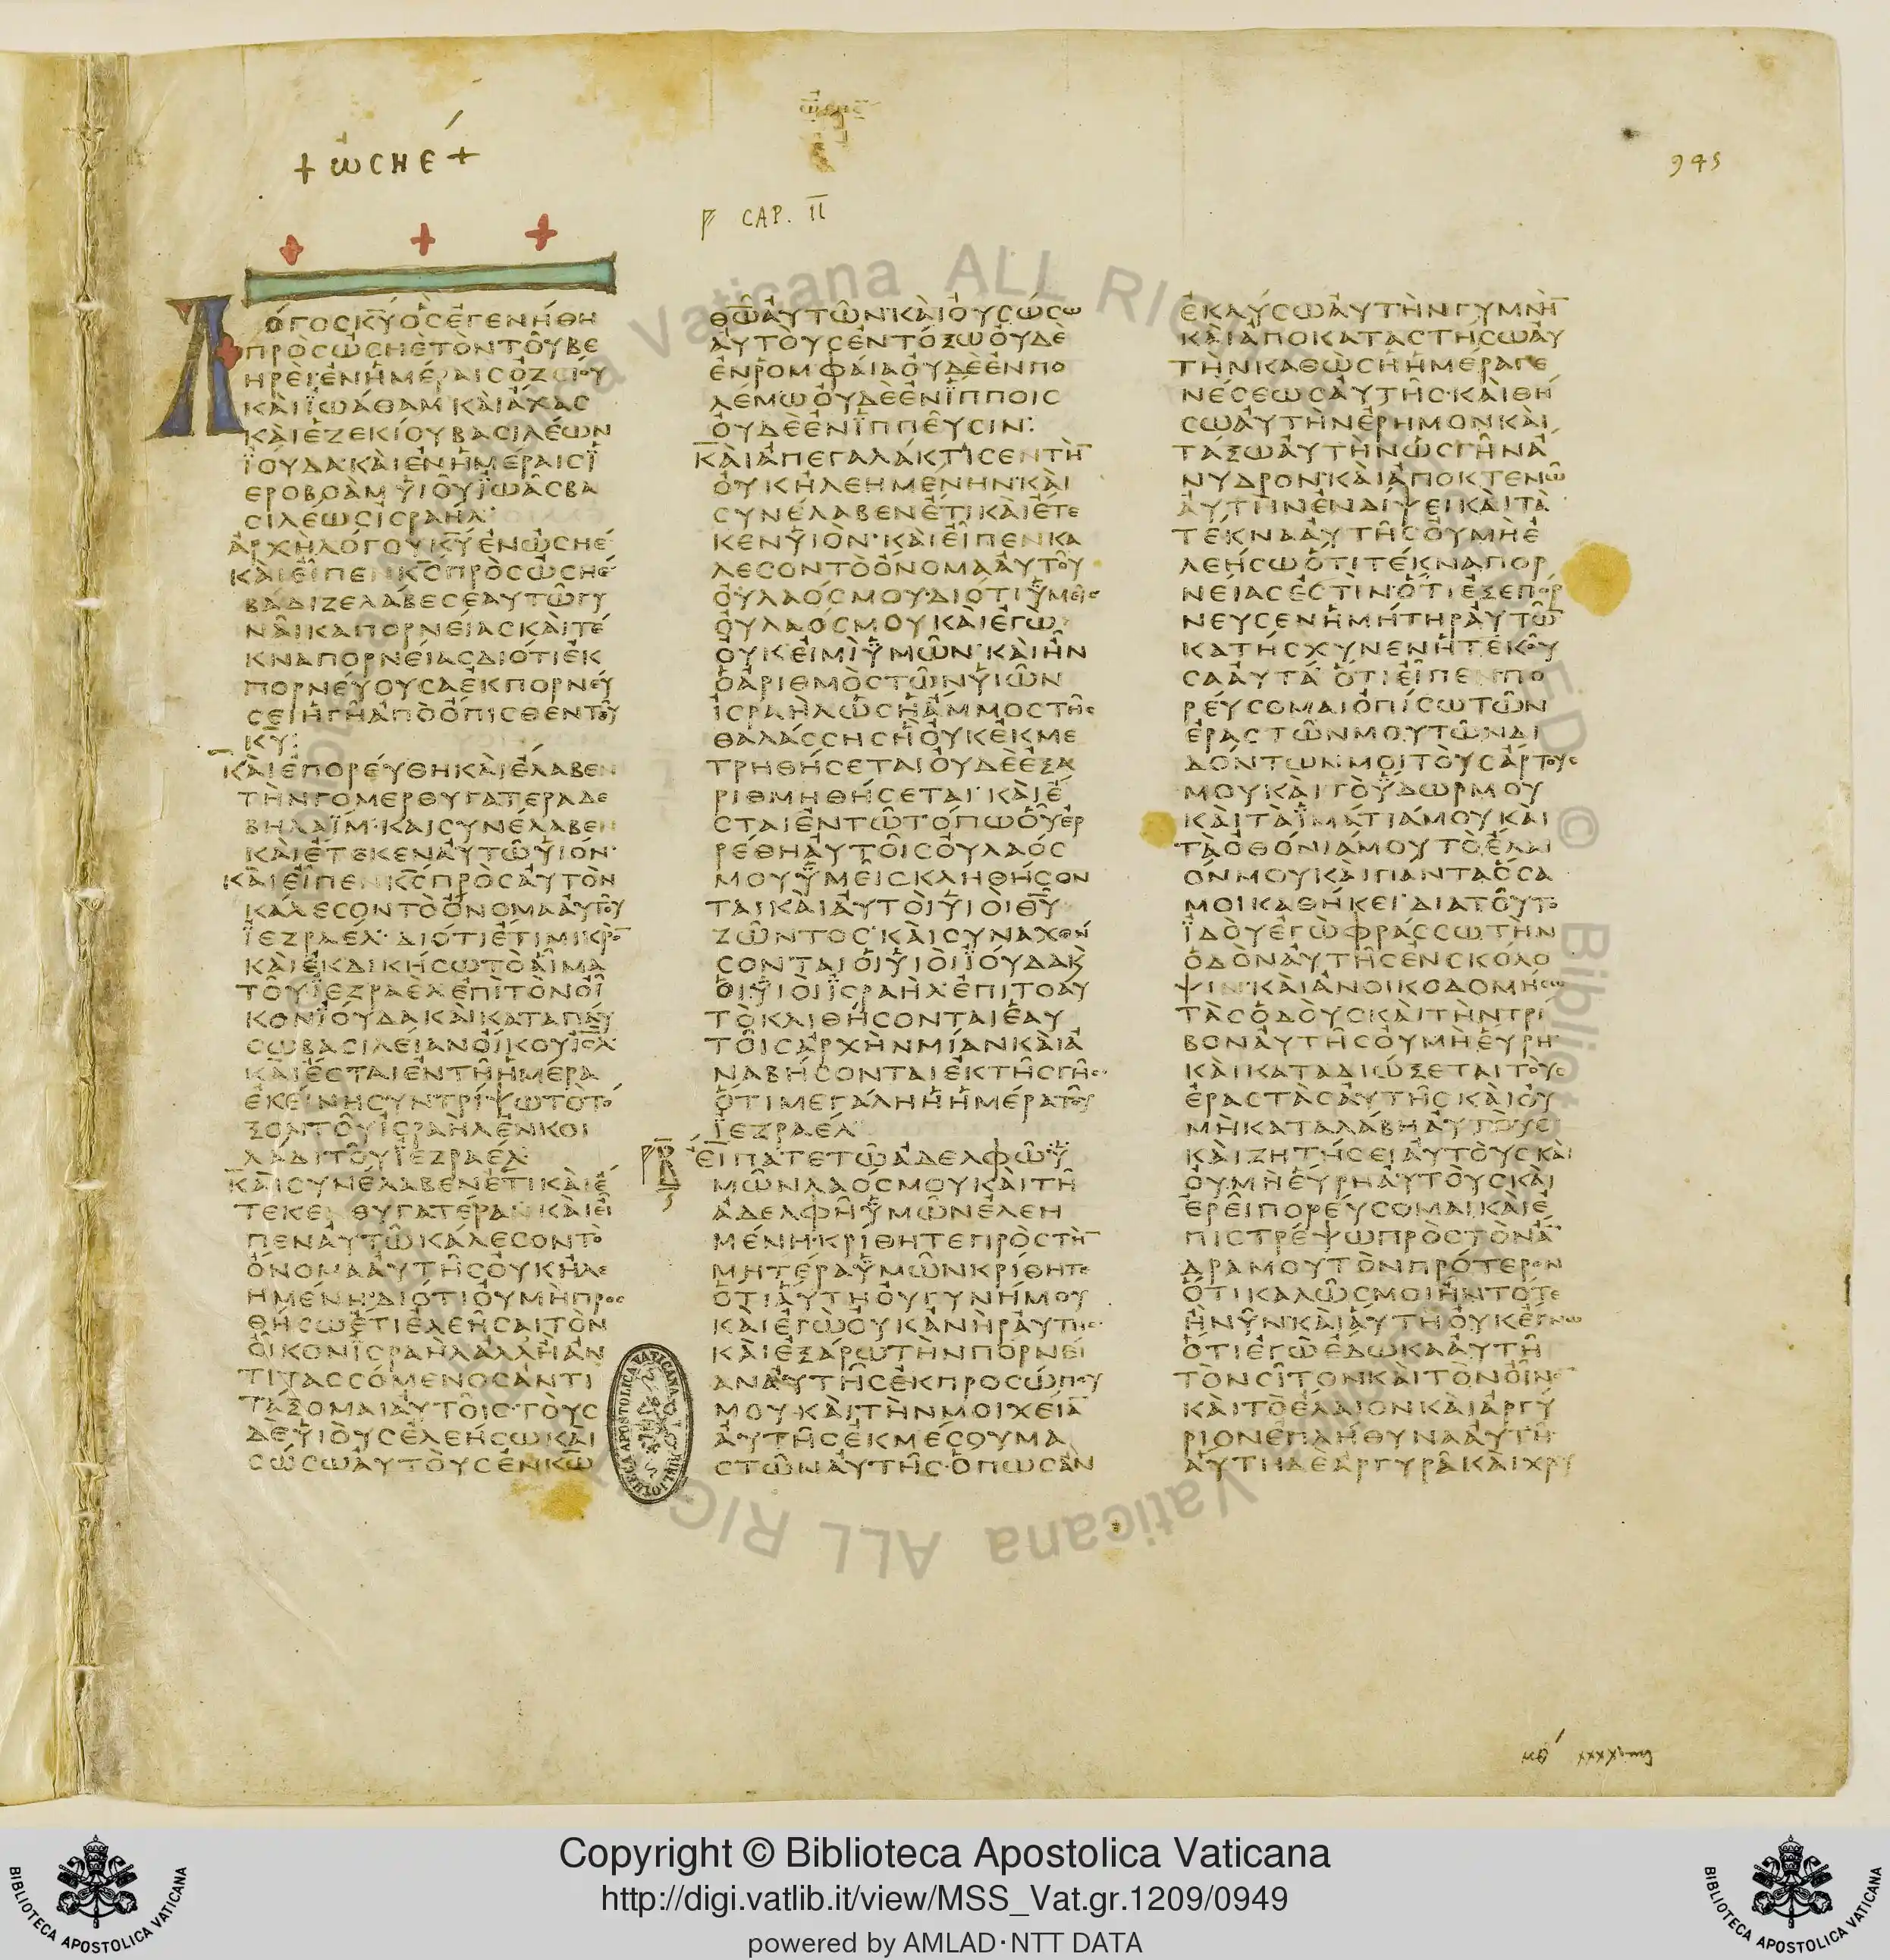 + ωσηέ +
ὠσηε
945
CAP. II
ΛΟΓΟΣ Κ̅Υ̅ ΟΣ ΕΓΕΝΗΘΗ
ΠΡΟΣ ΩΣΗΕ ΤΟΝ ΤΟΥ ΒΕ
ΗΡΕΙ ΕΝ ΗΜΕΡΑΙΣ ΟΖΕΙΟΥ
ΚΑΙ ΙΩΑΘΑΜ ΚΑΙ ΑΧΑΣ
ΚΑΙ ΕΖΕΚΙΟΥ ΒΑΣΙΛΕΩΝ
ΙΟΥΔΑ ΚΑΙ ΕΝ ΗΜΕΡΑΙΣ Ι
ΕΡΟΒΟΑΜ ΥΙΟΥ ΙΩΑΣ ΒΑ
ΣΙΛΕΩΣ ΙΣΡΑΗΛ
ΑΡΧΗ ΛΟΓΟΥ Κ̅Υ̅ ΕΝ ΩΣΗΕ
ΚΑΙ ΕΙΠΕΝ Κ̅Σ̅ ΠΡΟΣ ΩΣΗΕ
ΒΑΔΙΖΕ ΛΑΒΕ ΣΕΑΥΤΩ ΓΥ
ΝΑΙΚΑ ΠΟΡΝΕΙΑΣ ΚΑΙ ΤΕ
ΚΝΑ ΠΟΡΝΕΙΑΣ ΔΙΟΤΙ ΕΚ
ΠΟΡΝΕΥΟΥΣΑ ΕΚΠΟΡΝΕΥ
ΣΕΙ Η ΓΗ ΑΠΟ ΟΠΙΣΘΕΝ ΤΟΥ
Κ̅Υ̅:
ΚΑΙ ΕΠΟΡΕΥΘΗ ΚΑΙ ΕΛΑΒΕΝ
ΤΗΝ ΓΟΜΕΡ ΘΥΓΑΤΕΡΑ ΔΕ
ΒΗΛΑΙΜ ΚΑΙ ΣΥΝΕΛΑΒΕΝ
ΚΑΙ ΕΤΕΚΕΝ ΑΥΤΩ ΥΙΟΝ
ΚΑΙ ΕΙΠΕΝ Κ̅Σ̅ ΠΡΟΣ ΑΥΤΟΝ
ΚΑΛΕΣΟΝ ΤΟ ΟΝΟΜΑ ΑΥΤΟΥ
ΙΕΖΡΑΕΛ ΔΙΟΤΙ ΕΤΙ ΜΙΚΡΟ̅
ΚΑΙ ΕΚΔΙΚΗΣΩ ΤΟ ΑΙΜΑ
ΤΟΥ ΙΕΖΡΑΕΛ ΕΠΙ ΤΟΝ ΟΙ
ΚΟΝ ΙΟΥΔΑ ΚΑΙ ΚΑΤΑΠΑΥ
ΣΩ ΒΑΣΙΛΕΙΑΝ ΟΙΚΟΥ Ι̅Σ̅Λ̅
ΚΑΙ ΕΣΤΑΙ ΕΝ ΤΗ ΗΜΕΡΑ
ΕΚΕΙΝΗ ΣΥΝΤΡΙΨΩ ΤΟ ΤΟ
ΞΟΝ ΤΟΥ ΙΣΡΑΗΛ ΕΝ ΚΟΙ
ΛΑΔΙ ΤΟΥ ΙΕΖΡΑΕΛ
ΚΑΙ ΣΥΝΕΛΑΒΕΝ ΕΤΙ ΚΑΙ Ε
ΤΕΚΕΝ ΘΥΓΑΤΕΡΑ ΚΑΙ ΕΙ
ΠΕΝ ΑΥΤΩ ΚΑΛΕΣΟΝ ΤΟ
ΟΝΟΜΑ ΑΥΤΗΣ ΟΥΚ ΗΛΕ
ΗΜΕΝΗ ΔΙΟΤΙ ΟΥ ΜΗ ΠΡΟΣ
ΘΗΣΩ ΕΤΙ ΕΛΕΗΣΑΙ ΤΟΝ
ΟΙΚΟΝ ΙΣΡΑΗΛ ΑΛΛ Η ΑΝ
ΤΙΤΑΣΣΟΜΕΝΟΣ ΑΝΤΙ
ΤΑΞΟΜΑΙ ΑΥΤΟΙΣ ΤΟΥΣ
ΔΕ ΥΙΟΥΣ ΕΛΕΗΣΩ ΚΑΙ
ΣΩΣΩ ΑΥΤΟΥΣ ΕΝ Κ̅Ω̅
Θ̅Ω̅ ΑΥΤΩΝ ΚΑΙ ΟΥ ΣΩΣΩ
ΑΥΤΟΥΣ ΕΝ ΤΟΞΩ ΟΥΔΕ
ΕΝ ΡΟΜΦΑΙΑ ΟΥΔΕ ΕΝ ΠΟ
ΛΕΜΩ ΟΥΔΕ ΕΝ ΙΠΠΟΙΣ
ΟΥΔΕ ΕΝ ΙΠΠΕΥΣΙΝ:
ΚΑΙ ΑΠΕΓΑΛΑΚΤΙΣΕΝ ΤΗ̅
ΟΥΚ ΗΛΕΗΜΕΝΗΝ ΚΑΙ
ΣΥΝΕΛΑΒΕΝ ΕΤΙ ΚΑΙ ΕΤΕ
ΚΕΝ ΥΙΟΝ ΚΑΙ ΕΙΠΕΝ ΚΑ
ΛΕΣΟΝ ΤΟ ΟΝΟΜΑ ΑΥΤΟΥ
ΟΥ ΛΑΟΣ ΜΟΥ ΔΙΟΤΙ ΥΜΕΙΣ
ΟΥ ΛΑΟΣ ΜΟΥ ΚΑΙ ΕΓΩ
ΟΥΚ ΕΙΜΙ ΥΜΩΝ ΚΑΙ ΗΝ
Ο ΑΡΙΘΜΟΣ ΤΩΝ ΥΙΩΝ
ΙΣΡΑΗΛ ΩΣ Η ΑΜΜΟΣ ΤΗΣ
ΘΑΛΑΣΣΗΣ Η ΟΥΚ ΕΚΜΕ
ΤΡΗΘΗΣΕΤΑΙ ΟΥΔΕ ΕΞΑ
ΡΙΘΜΗΘΗΣΕΤΑΙ ΚΑΙ Ε
ΣΤΑΙ ΕΝ ΤΩ ΤΟΠΩ ΟΥ ΕΡ
ΡΕΘΗ ΑΥΤΟΙΣ ΟΥ ΛΑΟΣ
ΜΟΥ ΥΜΕΙΣ ΚΛΗΘΗΣΟΝ
ΤΑΙ ΚΑΙ ΑΥΤΟΙ ΥΙΟΙ Θ̅Υ̅
ΖΩΝΤΟΣ ΚΑΙ ΣΥΝΑΧΘΗ
ΣΟΝΤΑΙ ΟΙ ΥΙΟΙ ΙΟΥΔΑ Κ
ΟΙ ΥΙΟΙ ΙΣΡΑΗΛ ΕΠΙ ΤΟ ΑΥ
ΤΟ ΚΑΙ ΘΗΣΟΝΤΑΙ ΕΑΥ
ΤΟΙΣ ΑΡΧΗΝ ΜΙΑΝ ΚΑΙ Α
ΝΑΒΗΣΟΝΤΑΙ ΕΚ ΤΗΣ ΓΗΣ
ΟΤΙ ΜΕΓΑΛΗ Η ΗΜΕΡΑ ΤΟΥ
ΙΕΖΡΑΕΛ
ΕΙΠΑΤΕ ΤΩ ΑΔΕΛΦΩ Υ
ΜΩΝ ΛΑΟΣ ΜΟΥ ΚΑΙ ΤΗ
ΑΔΕΛΦΗ ΥΜΩΝ ΕΛΕΗ
ΜΕΝΗ ΚΡΙΘΗΤΕ ΠΡΟΣ ΤΗ̅
ΜΗΤΕΡΑ ΥΜΩΝ ΚΡΙΘΗΤΕ
ΟΤΙ ΑΥΤΗ ΟΥ ΓΥΝΗ ΜΟΥ
ΚΑΙ ΕΓΩ ΟΥΚ ΑΝΗΡ ΑΥΤΗΣ
ΚΑΙ ΕΞΑΡΩ ΤΗΝ ΠΟΡΝΕΙ
ΑΝ ΑΥΤΗΣ ΕΚ ΠΡΟΣΩΠΟΥ
ΜΟΥ ΚΑΙ ΤΗΝ ΜΟΙΧΕΙΑ̅
ΑΥΤΗΣ ΕΚ ΜΕΣΟΥ ΜΑ
ΣΤΩΝ ΑΥΤΗΣ ΟΠΩΣ ΑΝ
ΕΚΑΥΣΩ ΑΥΤΗΝ ΓΥΜΝΗ̅
ΚΑΙ ΑΠΟΚΑΤΑΣΤΗΣΩ ΑΥ
ΤΗΝ ΚΑΘΩΣ Η ΗΜΕΡΑ ΓΕ
ΝΕΣΕΩΣ ΑΥΤΗΣ ΚΑΙ ΘΗ
ΣΩ ΑΥΤΗΝ ΕΡΗΜΟΝ ΚΑΙ
ΤΑΞΩ ΑΥΤΗΝ ΩΣ ΓΗΝ Α
ΝΥΔΡΟΝ ΚΑΙ ΑΠΟΚΤΕΝΩ
ΑΥΤΗΝ ΕΝ ΔΙΨΕΙ ΚΑΙ ΤΑ
ΤΕΚΝΑ ΑΥΤΗΣ ΟΥ ΜΗ Ε
ΛΕΗΣΩ ΟΤΙ ΤΕΚΝΑ ΠΟΡ
ΝΕΙΑΣ ΕΣΤΙΝ ΟΤΙ ΕΞΕΠΟΡ
ΝΕΥΣΕΝ Η ΜΗΤΗΡ ΑΥΤΩ̅
ΚΑΤΗΣΧΥΝΕΝ Η ΤΕΚΟΥ
ΣΑ ΑΥΤΑ ΟΤΙ ΕΙΠΕΝ ΠΟ
ΡΕΥΣΟΜΑΙ ΟΠΙΣΩ ΤΩΝ
ΕΡΑΣΤΩΝ ΜΟΥ ΤΩΝ ΔΙ
ΔΟΝΤΩΝ ΜΟΙ ΤΟΥΣ ΑΡΤΟΥΣ
ΜΟΥ ΚΑΙ ΤΟ ΥΔΩΡ ΜΟΥ
ΚΑΙ ΤΑ ΙΜΑΤΙΑ ΜΟΥ ΚΑΙ
ΤΑ ΟΘΟΝΙΑ ΜΟΥ ΤΟ ΕΛΑΙ
ΟΝ ΜΟΥ ΚΑΙ ΠΑΝΤΑ ΟΣΑ
ΜΟΙ ΚΑΘΗΚΕΙ ΔΙΑ ΤΟΥΤΟ
ΙΔΟΥ ΕΓΩ ΦΡΑΣΣΩ ΤΗΝ
ΟΔΟΝ ΑΥΤΗΣ ΕΝ ΣΚΟΛΟ
ΨΙΝ ΚΑΙ ΑΝΟΙΚΟΔΟΜΗΣΩ
ΤΑΣ ΟΔΟΥΣ ΚΑΙ ΤΗΝ ΤΡΙ
ΒΟΝ ΑΥΤΗΣ ΟΥ ΜΗ ΕΥΡΗ
ΚΑΙ ΚΑΤΑΔΙΩΞΕΤΑΙ ΤΟΥΣ
ΕΡΑΣΤΑΣ ΑΥΤΗΣ ΚΑΙ ΟΥ
ΜΗ ΚΑΤΑΛΑΒΗ ΑΥΤΟΥΣ
ΚΑΙ ΖΗΤΗΣΕΙ ΑΥΤΟΥΣ ΚΑΙ
ΟΥ ΜΗ ΕΥΡΗ ΑΥΤΟΥΣ ΚΑΙ
ΕΡΕΙ ΠΟΡΕΥΣΟΜΑΙ ΚΑΙ Ε
ΠΙΣΤΡΕΨΩ ΠΡΟΣ ΤΟΝ Α
ΔΡΑ ΜΟΥ ΤΟΝ ΠΡΟΤΕΡΟΝ
ΟΤΙ ΚΑΛΩΣ ΜΟΙ ΗΝ ΤΟΤΕ
Η ΝΥΝ ΚΑΙ ΑΥΤΗ ΟΥΚ ΕΓΝΩ
ΟΤΙ ΕΓΩ ΕΔΩΚΑ ΑΥΤΗ
ΤΟΝ ΣΙΤΟΝ ΚΑΙ ΤΟΝ ΟΙΝΟ̅
ΚΑΙ ΤΟ ΕΛΑΙΟΝ ΚΑΙ ΑΡΓΥ
ΡΙΟΝ ΕΠΛΗΘΥΝΑ ΑΥΤΗ
ΑΥΤΗ ΔΕ ΑΡΓΥΡΑ ΚΑΙ ΧΡΥ
BIBLIOTECA APOSTOLICA VATICANA
Copyright © Biblioteca Apostolica Vaticana
http://digi.vatlib.it/view/MSS_Vat.gr.1209/0949
powered by AMLAD·NTT DATA